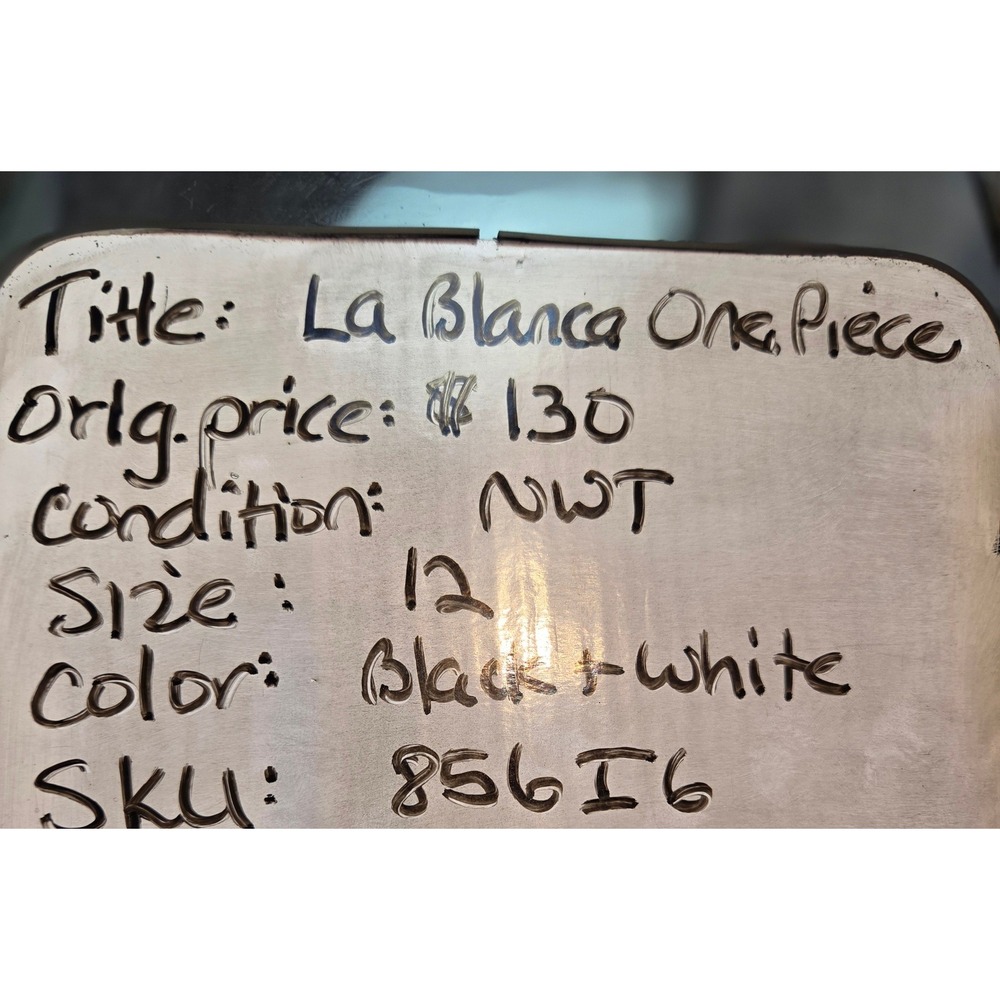 Title: La Blanca One Piece
Orig. price: $ 130
Condition: NWT
Size: 12
Color: Black + White
SKU: 856I6